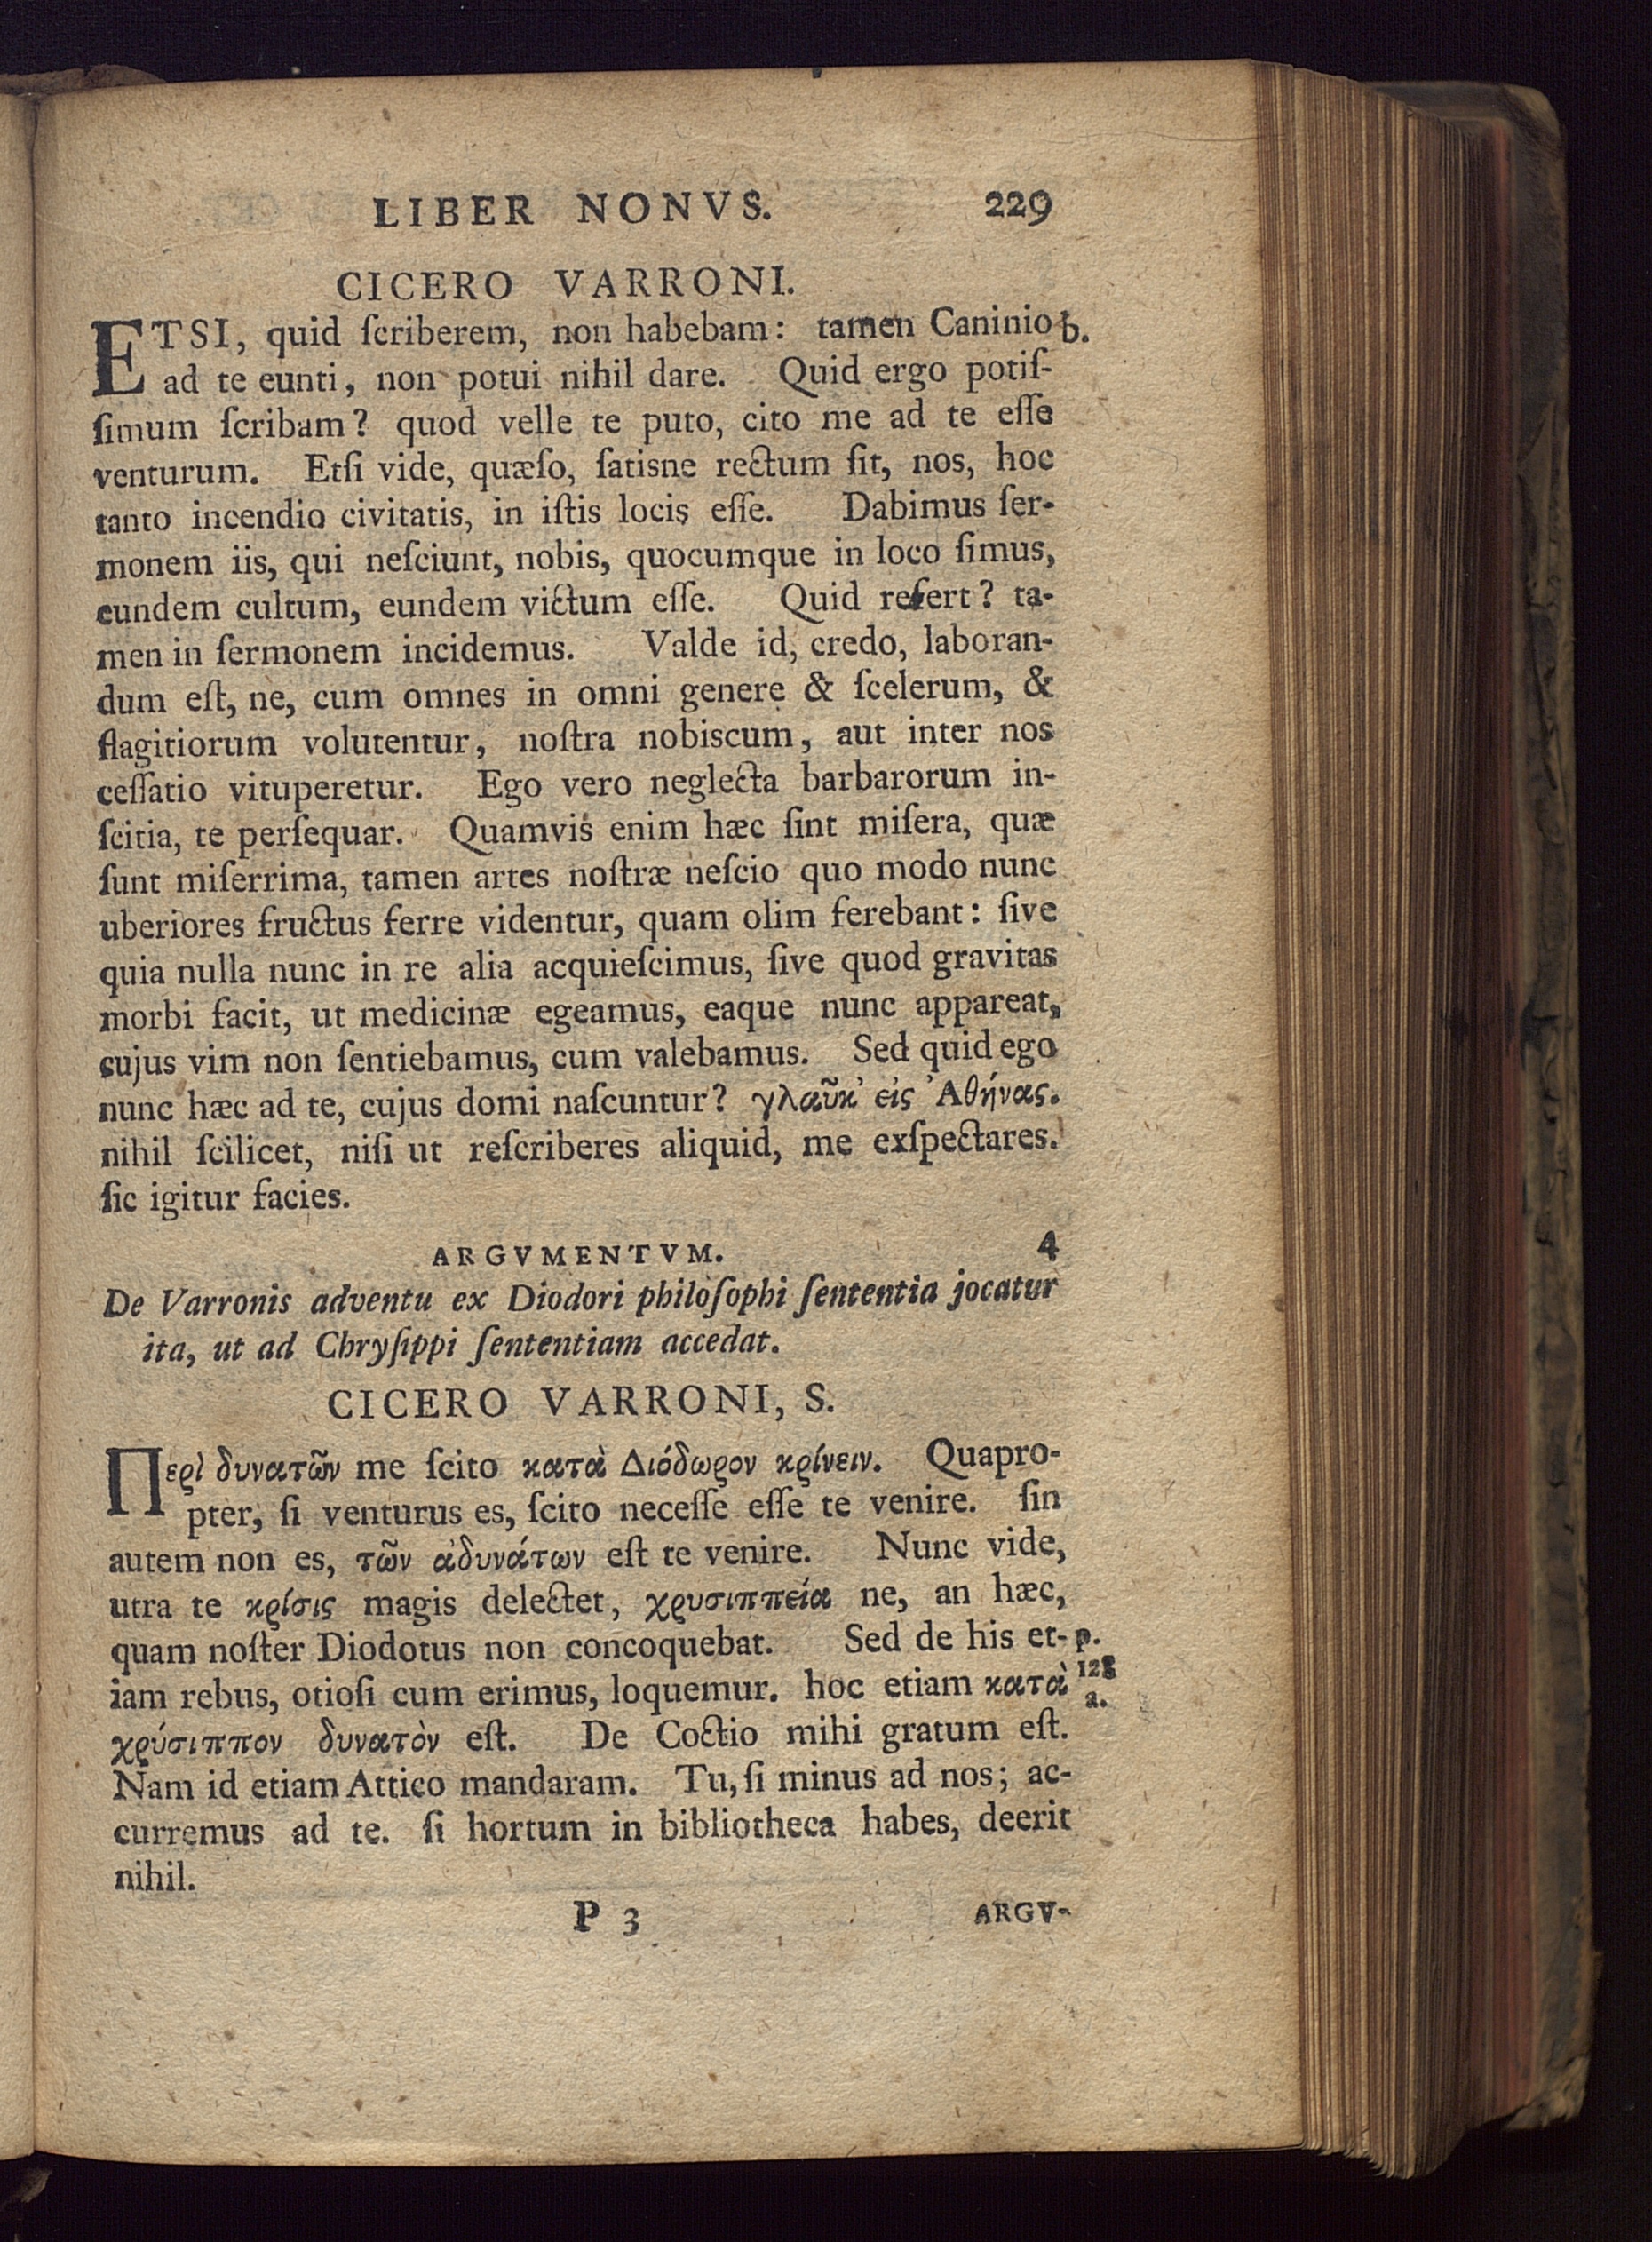 LIBER NONVS. 229
CICERO VARRONI.
ETSI, quid ſcriberem, non habebam: tamen Caninio b.
ad te eunti, non potui nihil dare. Quid ergo potiſ-
ſimum ſcribam? quod velle te puto, cito me ad te eſſe
venturum. Etſi vide, quæſo, ſatisne rectum ſit, nos, hoc
tanto incendio civitatis, in iſtis locis eſſe. Dabimus ſer-
monem iis, qui neſciunt, nobis, quocumque in loco ſimus,
eundem cultum, eundem victum eſſe. Quid refert? ta-
men in ſermonem incidemus. Valde id, credo, laboran-
dum eſt, ne, cum omnes in omni genere & ſcelerum, &
flagitiorum volutentur, noſtra nobiscum, aut inter nos
ceſſatio vituperetur. Ego vero neglecta barbarorum in-
ſcitia, te perſequar. Quamvis enim hæc ſint miſera, quæ
ſunt miſerrima, tamen artes noſtræ neſcio quo modo nunc
uberiores fructus ferre videntur, quam olim ferebant: ſive
quia nulla nunc in re alia acquieſcimus, ſive quod gravitas
morbi facit, ut medicinæ egeamus, eaque nunc appareat,
cujus vim non ſentiebamus, cum valebamus. Sed quid ego
nunc hæc ad te, cujus domi naſcuntur? γλαῦκ' εἰς Ἀθήνας.
nihil ſcilicet, niſi ut reſcriberes aliquid, me exſpectares.
ſic igitur facies.
ARGVMENTVM. 4
De Varronis adventu ex Diodori philoſophi ſententia jocatur
ita, ut ad Chryſippi ſententiam accedat.
CICERO VARRONI, S.
Περὶ δυνατῶν me ſcito κατὰ Διόδωρον κρίνειν. Quapro-
pter, ſi venturus es, ſcito neceſſe eſſe te venire. ſin
autem non es, τῶν ἀδυνάτων eſt te venire. Nunc vide,
utra te κρίσις magis delectet, χρυσιππεία ne, an hæc,
quam noſter Diodotus non concoquebat. Sed de his et- p.
iam rebus, otioſi cum erimus, loquemur. hoc etiam κατὰ 128 a.
χρύσιππον δυνατὸν eſt. De Coctio mihi gratum eſt.
Nam id etiam Attico mandaram. Tu, ſi minus ad nos; ac-
curremus ad te. ſi hortum in bibliotheca habes, deerit
nihil.
P 3 ARGV-